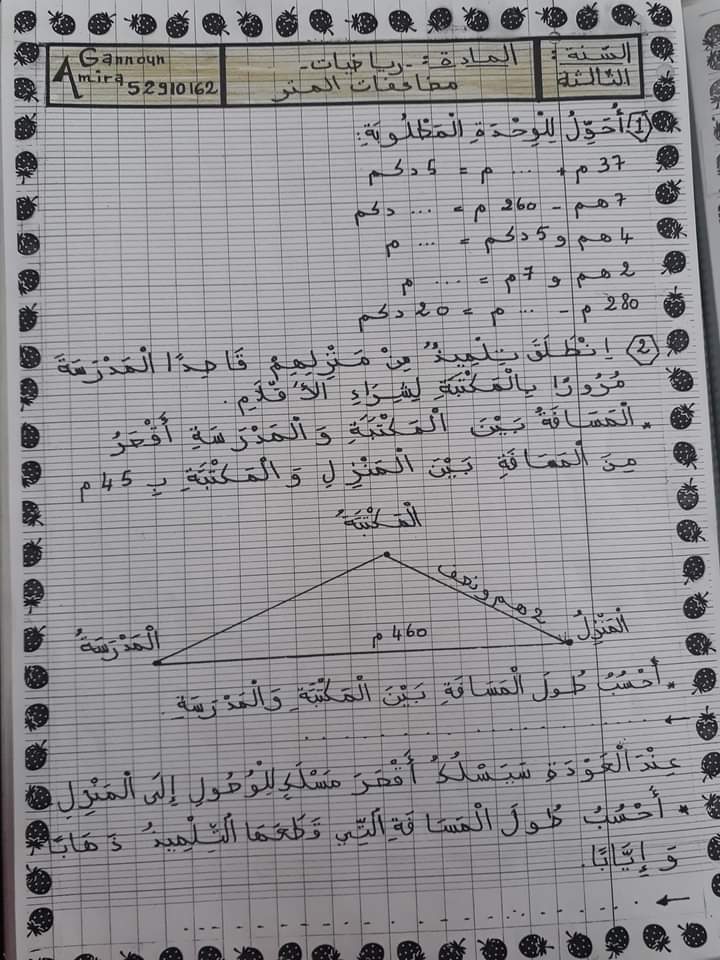 السّنة : الثّالثة
المادة : - رياضيات -
مضاعفات المتر
Gannoun
Amira 52910162
1 أُحَوِّلُ لِلْوِحْدَةِ الْمَطْلُوبَةِ:
37 م + ... م = 5 دكم
7 هم - 260 م = ... دكم
4 هم و 5 دكم = ... م
2 هم و 7 م = .... م
280 م - ... م = 20 دكم
2 اِنْطَلَقَ تِلْمِيذٌ مِنْ مَنْزِلِهِمْ قَاصِدًا الْمَدْرَسَةَ
مُرُورًا بِالْمَكْتَبَةِ لِشِرَاءِ الأَقْلَامِ.
* الْمَسَافَةُ بَيْنَ الْمَكْتَبَةِ وَالْمَدْرَسَةِ أَقْصَرُ
مِنَ الْمَسَافَةِ بَيْنَ الْمَنْزِلِ وَالْمَكْتَبَةِ بِ 45 م
الْمَكْتَبَةُ
2 هم ونصف
الْمَنْزِلُ
460 م
الْمَدْرَسَةُ
* أَحْسُبُ طُولَ الْمَسَافَةِ بَيْنَ الْمَكْتَبَةِ وَالْمَدْرَسَةِ.
عِنْدَ الْعَوْدَةِ سَيَسْلُكُ أَقْصَرَ مَسْلَكٍ لِلْوُصُولِ إِلَى الْمَنْزِلِ
* أَحْسُبُ طُولَ الْمَسَافَةِ الَّتِي قَطَعَهَا التِّلْمِيذُ ذَهَابًا
وَ إِيَّابًا.